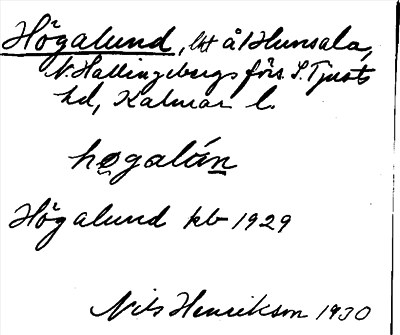 Högalund, lht å Hunsala,
N. Hallingebergs förs. S. Tjusts
hd, Kalmar l.
høgalún
Högalund kb 1929
Nils Henrikson 1930